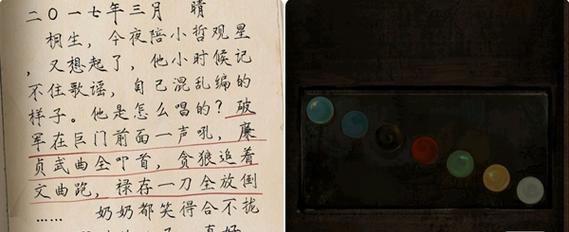 二〇一七年三月 晴
桐生，今夜陪小哲观星
，又想起了，他小时候记
不住歌谣，自己混乱编的
样子。他是怎么唱的？破
军在巨门前面一声吼，廉
贞武曲全叩首，贪狼追着
文曲跑，禄存一刀全放倒
…… 奶奶都笑得合不拢